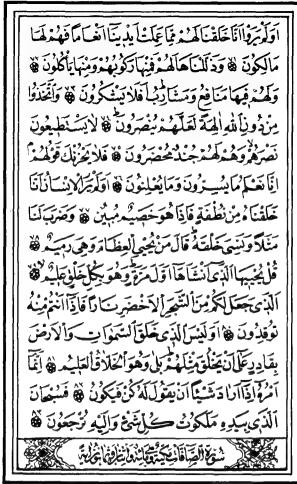 اَوَلَمْ يَرَوْا اَنَّا خَلَقْنَا لَهُمْ مِمَّا عَمِلَتْ اَيْدِينَا اَنْعَامًا فَهُمْ لَهَا
مَالِكُونَ ۞ وَذَلَّلْنَاهَا لَهُمْ فَمِنْهَا رَكُوبُهُمْ وَمِنْهَا يَأْكُلُونَ ۞
وَلَهُمْ فِيهَا مَنَافِعُ وَمَشَارِبُ اَفَلَا يَشْكُرُونَ ۞ وَاتَّخَذُوا
مِنْ دُونِ اللّٰهِ اٰلِهَةً لَعَلَّهُمْ يُنْصَرُونَ ۞ لَا يَسْتَطِيعُونَ
نَصْرَهُمْ وَهُمْ لَهُمْ جُنْدٌ مُحْضَرُونَ ۞ فَلَا يَحْزُنْكَ قَوْلُهُمْ
اِنَّا نَعْلَمُ مَا يُسِرُّونَ وَمَا يُعْلِنُونَ ۞ اَوَلَمْ يَرَ الْاِنْسَانُ اَنَّا
خَلَقْنَاهُ مِنْ نُطْفَةٍ فَاِذَا هُوَ خَصِيمٌ مُبِينٌ ۞ وَضَرَبَ لَنَا
مَثَلًا وَنَسِيَ خَلْقَهُ قَالَ مَنْ يُحْيِي الْعِظَامَ وَهِيَ رَمِيمٌ ۞
قُلْ يُحْيِيهَا الَّذِي اَنْشَاَهَا اَوَّلَ مَرَّةٍ وَهُوَ بِكُلِّ خَلْقٍ عَلِيمٌ ۞
اَلَّذِي جَعَلَ لَكُمْ مِنَ الشَّجَرِ الْاَخْضَرِ نَارًا فَاِذَا اَنْتُمْ مِنْهُ
تُوقِدُونَ ۞ اَوَلَيْسَ الَّذِي خَلَقَ السَّمٰوَاتِ وَالْاَرْضَ
بِقَادِرٍ عَلٰى اَنْ يَخْلُقَ مِثْلَهُمْ بَلٰى وَهُوَ الْخَلَّاقُ الْعَلِيمُ ۞ اِنَّمَا
اَمْرُهُ اِذَا اَرَادَ شَيْئًا اَنْ يَقُولَ لَهُ كُنْ فَيَكُونُ ۞ فَسُبْحَانَ
الَّذِي بِيَدِهِ مَلَكُوتُ كُلِّ شَيْءٍ وَاِلَيْهِ تُرْجَعُونَ ۞
سُورَةُ الصَّافَّاتِ مَكِّيَّةٌ وَهِيَ